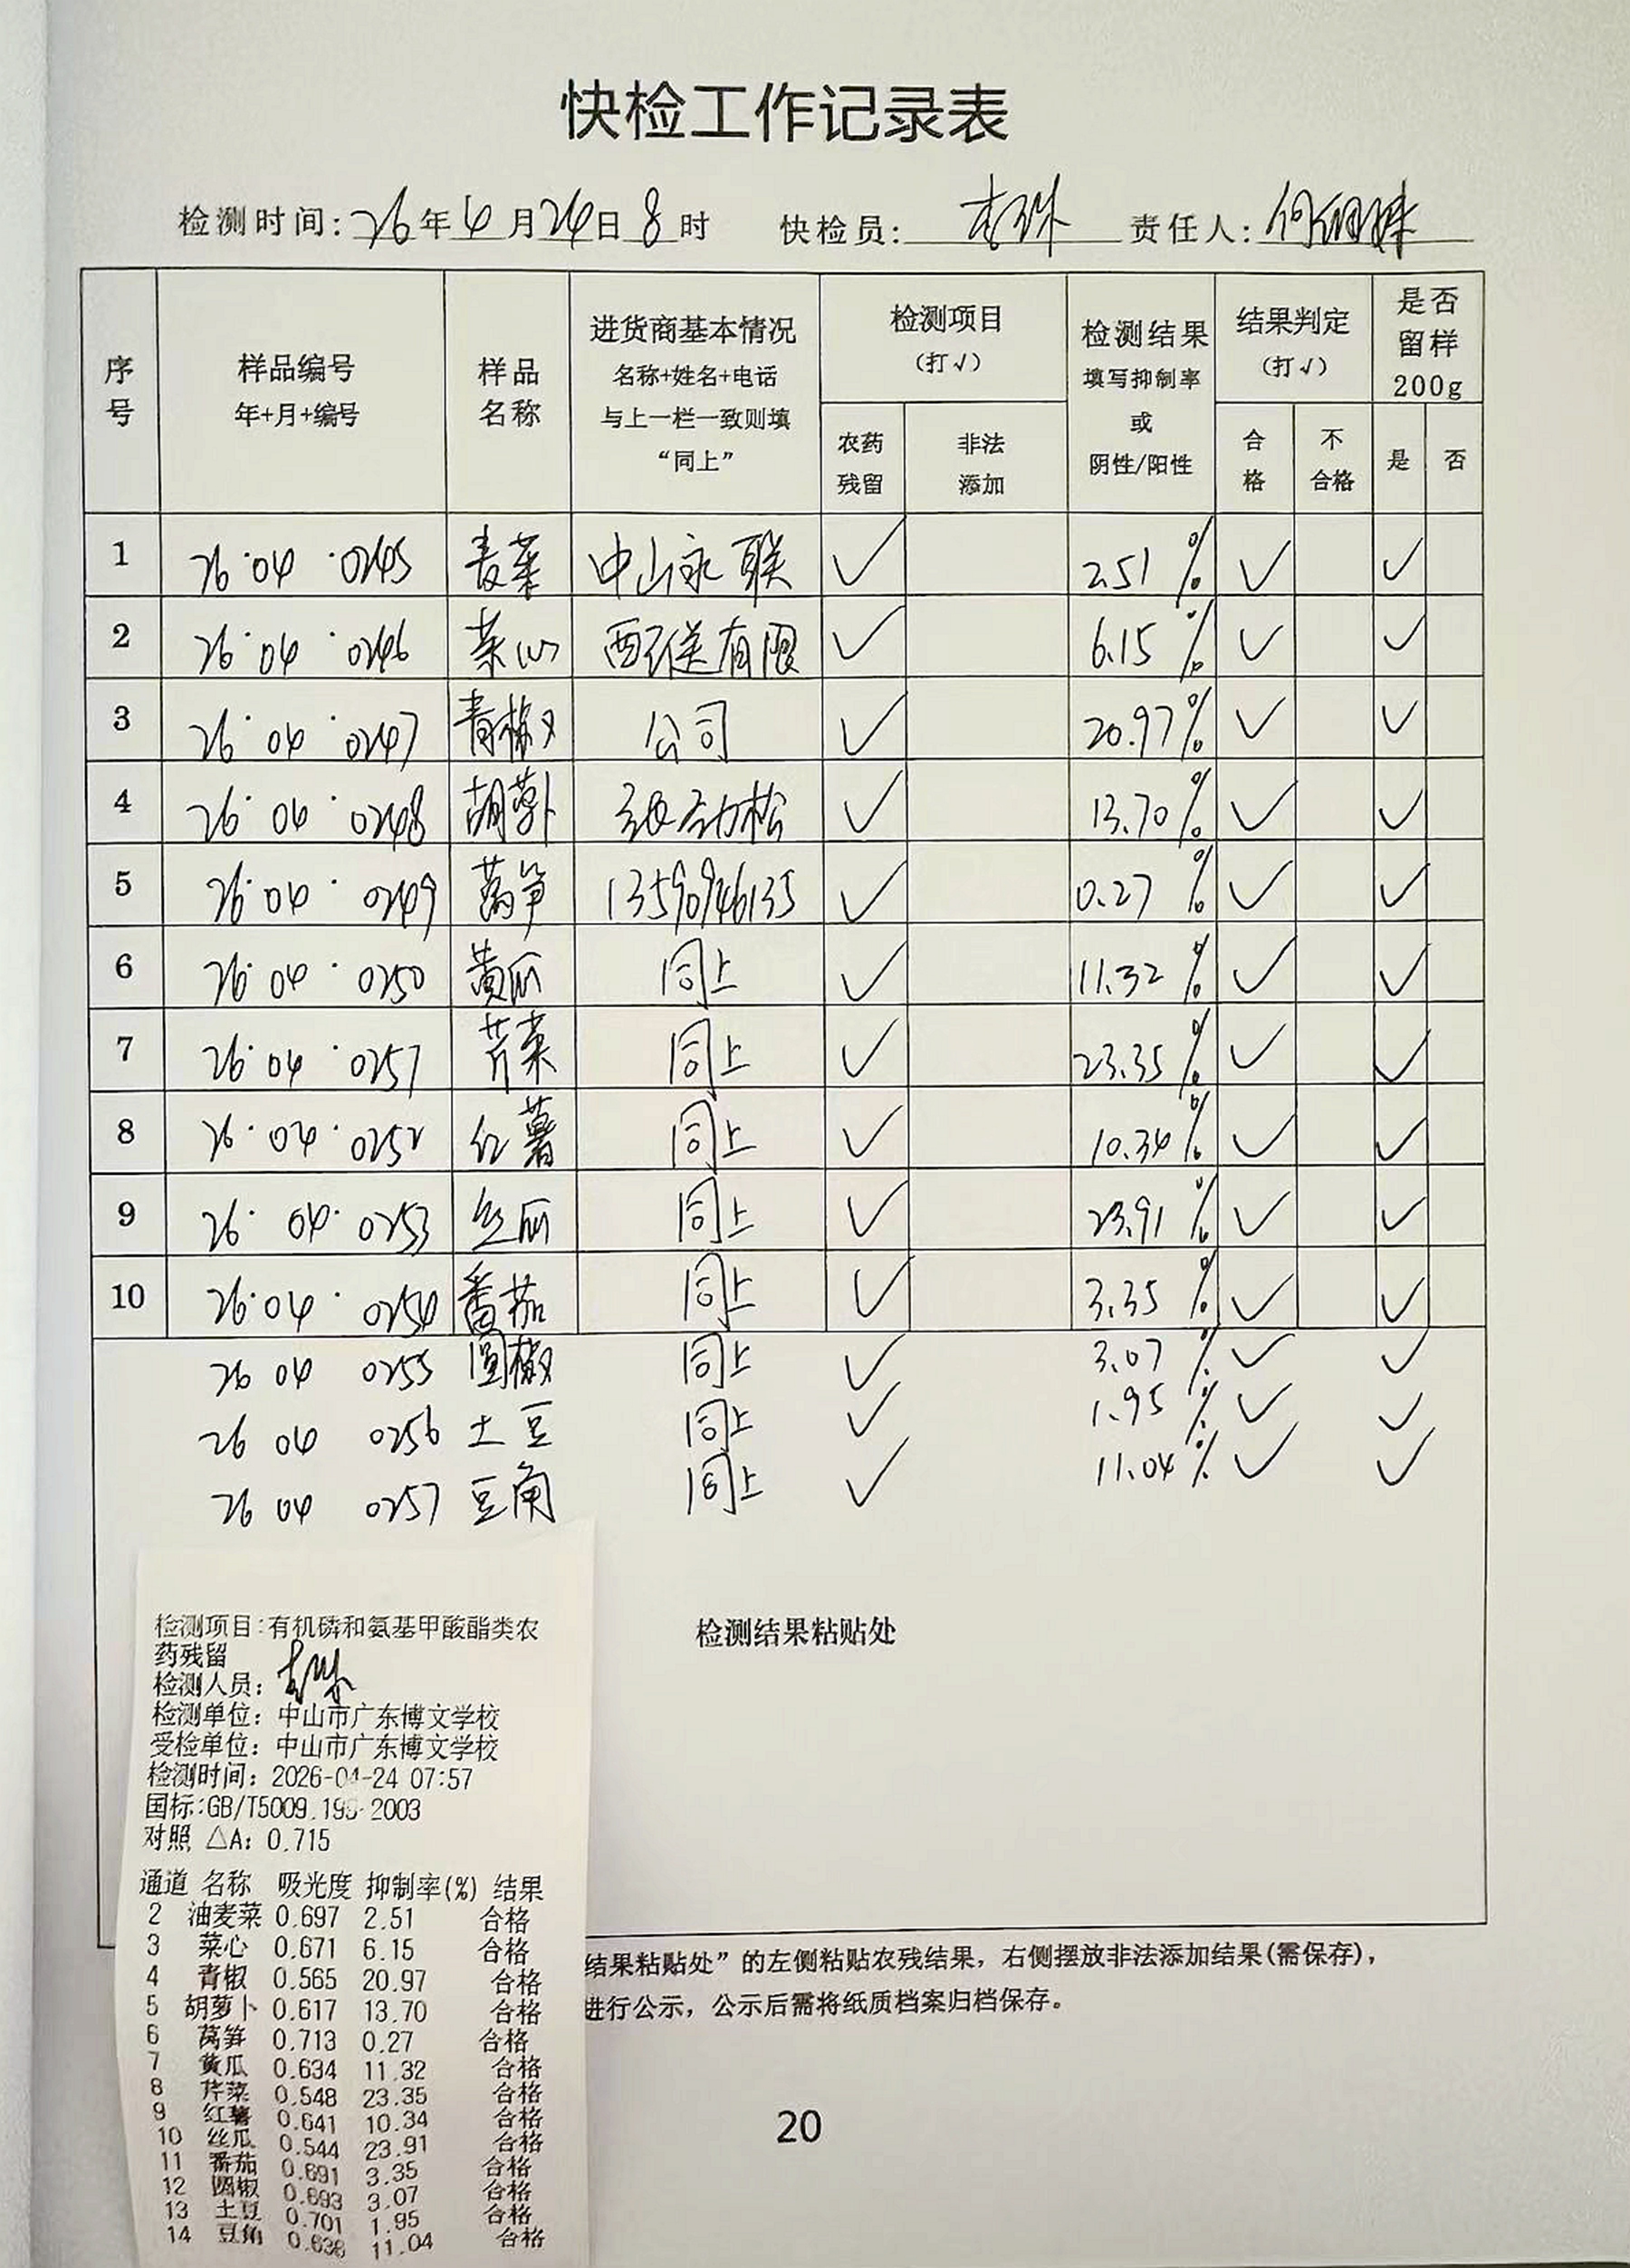 快检工作记录表
检测时间: 26年4月24日8时 快检员: 责任人:
序号 样品编号 年+月+编号 样品名称 进货商基本情况 名称+姓名+电话 与上一栏一致则填“同上” 检测项目(打√) 农药残留 非法添加 检测结果 填写抑制率或阴性/阳性 结果判定(打√) 合格 不合格 是否留样200g 是 否
1 26·04·0245 麦菜 中山永联 ✓ 2.51% ✓ ✓
2 26·04·0246 菜心 配送有限 ✓ 6.15% ✓ ✓
3 26·04·0247 青椒 公司 ✓ 20.97% ✓ ✓
4 26·04·0248 胡萝卜 张劲松 ✓ 13.70% ✓ ✓
5 26·04·0249 莴笋 13590946135 ✓ 0.27% ✓ ✓
6 26·04·0250 黄瓜 同上 ✓ 11.32% ✓ ✓
7 26·04·0251 芹菜 同上 ✓ 23.35% ✓ ✓
8 26·04·0252 红薯 同上 ✓ 10.34% ✓ ✓
9 26·04·0253 丝瓜 同上 ✓ 23.91% ✓ ✓
10 26·04·0254 番茄 同上 ✓ 3.35% ✓ ✓
26 04 0255 圆椒 同上 ✓ 3.07% ✓ ✓
26 04 0256 土豆 同上 ✓ 1.95% ✓ ✓
26 04 0257 豆角 同上 ✓ 11.04% ✓ ✓
检测结果粘贴处
检测项目:有机磷和氨基甲酸酯类农
药残留
检测人员:
检测单位: 中山市广东博文学校
受检单位: 中山市广东博文学校
检测时间: 2026-04-24 07:57
国标:GB/T5009.199-2003
对照 △A: 0.715
通道 名称 吸光度 抑制率(%) 结果
2 油麦菜 0.697 2.51 合格
3 菜心 0.671 6.15 合格
4 青椒 0.565 20.97 合格
5 胡萝卜 0.617 13.70 合格
6 莴笋 0.713 0.27 合格
7 黄瓜 0.634 11.32 合格
8 芹菜 0.548 23.35 合格
9 红薯 0.641 10.34 合格
10 丝瓜 0.544 23.91 合格
11 番茄 0.691 3.35 合格
12 圆椒 0.693 3.07 合格
13 土豆 0.701 1.95 合格
14 豆角 0.636 11.04 合格
结果粘贴处”的左侧粘贴农残结果，右侧摆放非法添加结果(需保存)，
进行公示，公示后需将纸质档案归档保存。
20